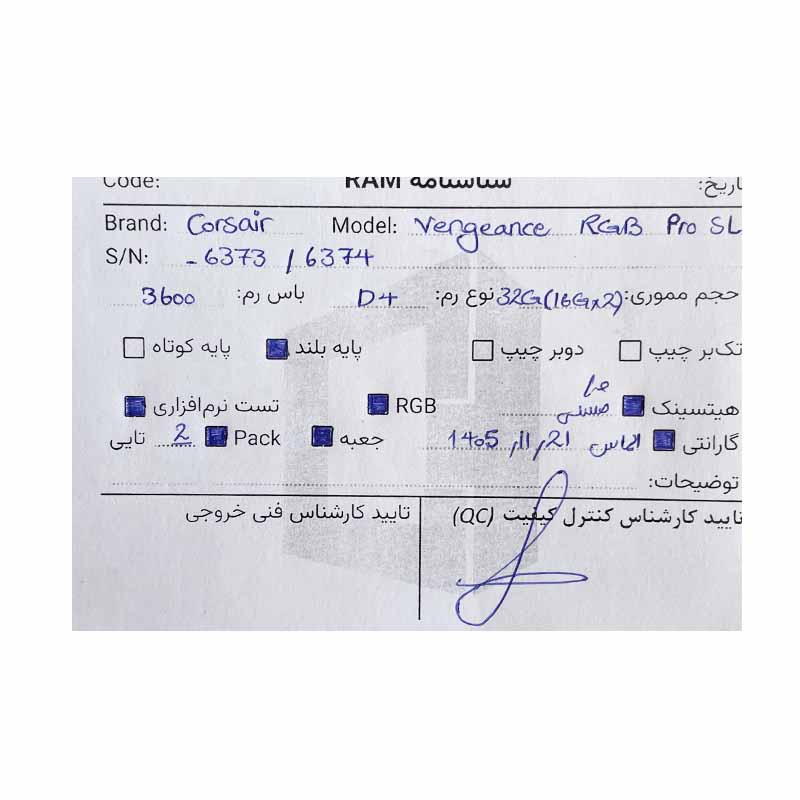 Code: شناسنامه RAM تاریخ:
Brand: Corsair Model: Vengeance RGB Pro SL
S/N: - 6373 / 6374
حجم مموری: 32G(16G×2) نوع رم: D4 باس رم: 3600
تک‌بر چیپ دوبر چیپ پایه بلند پایه کوتاه
هیتسینک RGB تست نرم‌افزاری
گارانتی الماس 1405/11/21 جعبه Pack 2 تایی
توضیحات:
تایید کارشناس کنترل کیفیت (QC) تایید کارشناس فنی خروجی